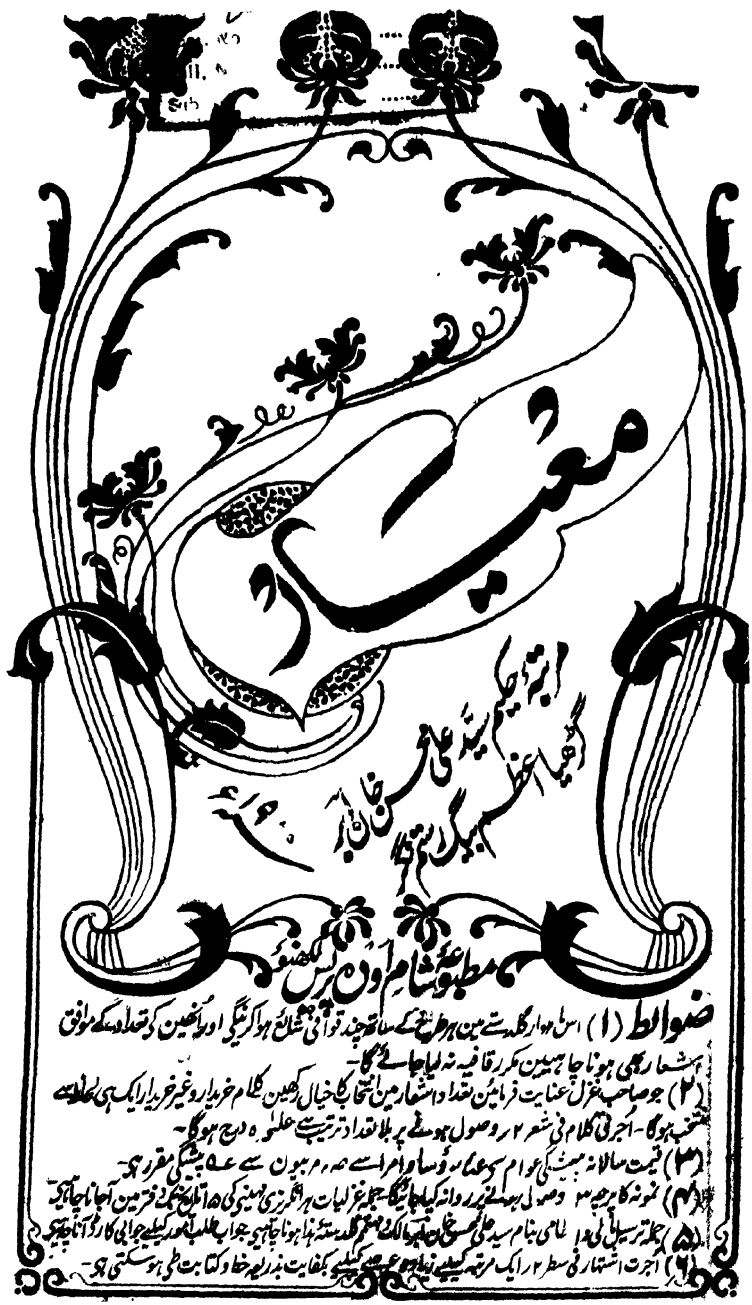 معیار
مرتبۂ حکیم سیّد علی محسن خان آبر
گڑھیا اعظم بیگ
مطبوعۂ شام اودہ پریس لکھنؤ
ضوابط (۱) اس ماہوار گلدستے مین ہر طرح کے ساتھ چند قوافی شائع ہوا کرینگی اور اُنھین کی تعداد کے موافق
اشعار بھی ہونا چاہییں مکرر قافیہ نہ لیا جائے گا۔
(۲) جو صاحب غزل عنایت فرمائین تعداد اشعار مین انتخاب کا خیال رکھین کلام خریدار و غیر خریدار ایک ہی لحاظ سے
منتخب ہوگا۔ اُجرتی کلام فی شعر ۲ر وصول ہونے پر بلا تعداد ترتیب سے علٰحدہ درج ہوگا۔
(۳) قیمت سالانہ پیشگی عوام سے رؤسا و امرا سے ممبرون سے پیشگی مقرر ہی۔
(۴) نمونہ کا پرچہ وصول ہونے پر روانہ کیا جائیگا جملہ غزلیات ہر انگریزی مہینی کی ۱۵ تاریخ تک دفتر مین آجانا چاہیی
(۵) جملہ ترسیل بنام سید علی محسن خان آبر مالک گلدستۂ ہذا ہونا چاہیی جواب طلب امور کیلیے جوابی کارڈ آنا چاہیی
(۶) اُجرت اشتہار فی سطر ۲ر ایک مرتبہ کیلیے زیادہ عرصہ کیلیے بکفایت بذریعہ خط و کتابت طی ہو سکتی ہی۔